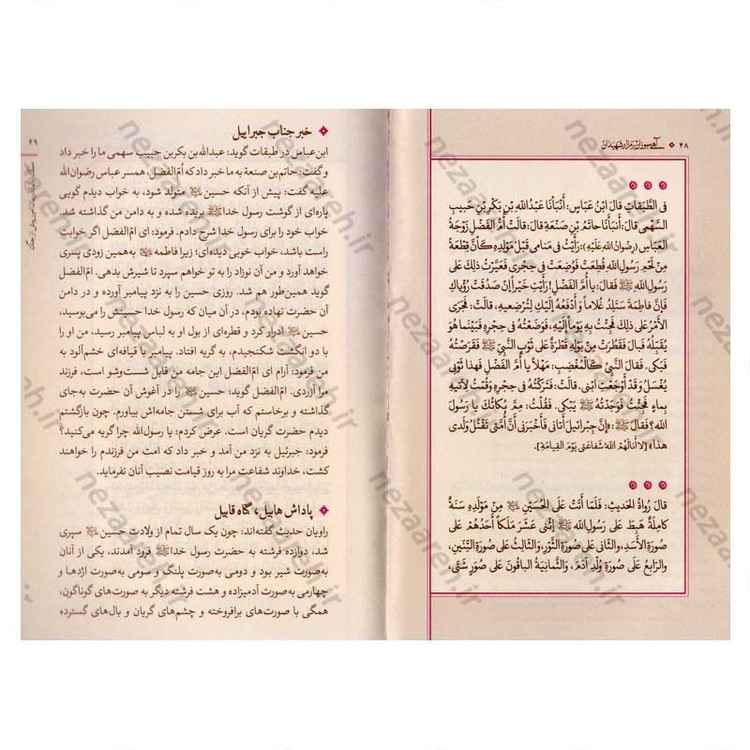 ۴۸ آهی سوزان بر مزار شهیدان
فی الطَّبَقاتِ قالَ ابْنُ عَبّاسٍ: أَنْبَأَنا عَبْدُاللهِ بْنِ بَکْرِ بْنِ حَبیبٍ
السَّهْمی قالَ: أَنْبَأَنا حاتَمُ بْنِ صَنْعَةِ قالَ: قالَتْ أُمُّ الْفَضْلِ زَوْجَةُ
الْعَبّاسِ (رِضْوانُ اللهِ عَلَیْهِ): رَأَیْتُ فی مَنامی قَبْلَ مَوْلِدِهِ کَأَنَّ قِطْعَةً
مِنْ لَحْمِ رَسُولِ اللهِ قُطِعَتْ فَوُضِعَتْ فی حِجْری، فَعَبَّرْتُ ذلِکَ عَلی
رَسُولِ اللهِ ﷺ فَقالَ: یا أُمَّ الْفَضْلِ! رَأَیْتِ خَیْراً إِنْ صَدَقَتْ رُؤْیاکِ
فَإِنَّ فاطِمَةَ سَتَلِدُ غُلاماً وَ أَدْفَعُهُ إِلَیْکِ لِتُرْضِعیهِ، قالَتْ: فَجَری
الْأَمْرُ عَلی ذلِکَ فَجِئْتُ بِهِ یَوْماً إِلَیْهِ، فَوَضَعْتُهُ فی حِجْرِهِ فَبَیْنَما هُوَ
یُقَبِّلُهُ فَبالَ فَقَطَرَتْ مِنْ بَوْلِهِ قَطْرَةٌ عَلی ثَوْبِ النَّبِیِّ ﷺ فَقَرَصْتُهُ
فَبَکی. فَقالَ النَّبِیُّ کَالْمُغْضَبِ: مَهْلاً یا أُمَّ الْفَضْلِ فَهذا ثَوْبی
یُغْسَلُ وَ قَدْ أَوْجَعْتِ ابْنی. قالَتْ: فَتَرَکْتُهُ فی حِجْرِهِ وَ قُمْتُ لِآتِیَهُ
بِماءٍ فَجِئْتُ فَوَجَدْتُهُ ﷺ یَبْکی. فَقُلْتُ: مِمَّ بُکائُکَ یا رَسُولَ
اللهِ؟ فَقالَ ﷺ: «إِنَّ جِبْرائیلَ أَتانی فَأَخْبَرَنی أَنَّ أُمَّتی تَقْتُلُ وَلَدی
هذا» [لا أَنالَهُمُ اللهُ شَفاعَتی یَوْمَ الْقِیامَةِ].
قالَ رُواةُ الْحَدیثِ: فَلَمّا أَتَتْ عَلَی الْحُسَیْنِ ﷺ مِنْ مَوْلِدِهِ سَنَةٌ
کامِلَةٌ هَبَطَ عَلی رَسُولِ اللهِ ﷺ إِثْنی عَشَرَ مَلَکاً أَحَدُهُمْ عَلی
صُورَةِ الْأَسَدِ، وَالثّانی عَلی صُورَةِ الثَّوْرِ، وَالثّالِثُ عَلی صُورَةِ التِّنّینِ،
وَالرّابِعُ عَلی صُورَةِ وُلْدِ آدَمَ، وَالثَّمانِیَةُ الْباقُونَ عَلی صُوَرٍ شَتّی،
۴۹
خبر جناب جبراییل
ابن‌عباس در طبقات گوید: عبدالله بن بکر بن حبیب سهمی ما را خبر داد
و گفت: حاتم بن صنعة به ما خبر داد که اُمّ‌الفضل، همسر عباس رضوان الله
علیه گفت: پیش از آنکه حسین متولد شود، به خواب دیدم گویی
پاره‌ای از گوشت رسول خدا ﷺ بریده شده و به دامن من گذاشته شد.
خواب خود را برای رسول خدا شرح دادم. فرمود: ای امّ‌الفضل اگر خوابت
راست باشد، خواب خوبی دیده‌ای؛ زیرا فاطمه به‌همین زودی پسری
خواهد آورد و من آن نوزاد را به تو خواهم سپرد تا شیرش بدهی. امّ‌الفضل
گوید همین‌طور هم شد. روزی حسین را به نزد پیامبر آورده و در دامن
آن حضرت نهاده بودم، در آن میان که رسول خدا حسینش را می‌بوسید،
حسین ادرار کرد و قطره‌ای از بول او به لباس پیامبر رسید، من او را
با دو انگشت شکنجیدم، به گریه افتاد. پیامبر با قیافه‌ای خشم‌آلود به
من فرمود: آرام ای امّ‌الفضل این جامه من قابل شست‌وشو است، فرزند
مرا آزردی. امّ‌الفضل گوید: حسین را در آغوش آن حضرت به‌جای
گذاشته و برخاستم که آب برای شستن جامه‌اش بیاورم. چون بازگشتم
دیدم حضرت گریان است. عرض کردم: یا رسول‌الله چرا گریه می‌کنید؟
فرمود: جبرئیل به نزد من آمد و خبر داد که امت من فرزندم را خواهند
کشت، خداوند شفاعت مرا به روز قیامت نصیب آنان نفرماید.
پاداش هابیل، گاه قابیل
راویان حدیث گفته‌اند: چون یک سال تمام از ولادت حسین سپری
شد، دوازده فرشته به حضرت رسول خدا ﷺ فرود آمدند، یکی از آنان
به‌صورت شیر بود و دومی به‌صورت پلنگ و سومی به صورت اژدها و
چهارمی به‌صورت آدمیزاده و هشت فرشته دیگر به صورت‌های گوناگون،
همگی با صورت‌های برافروخته و چشم‌های گریان و بال‌های گسترده
nezaareh.ir